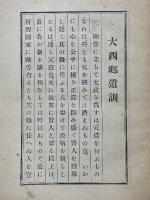 大西郷遺訓
一 廟堂に立ちて大政を爲すは天道を行ふもの
なれば些とも私を挾みては濟まぬもの也いか
にも心を公平に操り正道を踏み廣く賢人を選擧
し能く其の職に任ふる人を擧げて政柄を執らし
むるは即ち天意也夫れ故眞に賢人と認る以上は
直に我が職を讓る程ならでは叶はぬものぞ故に
何程國家に勳勞有るとも其の職に任へぬ人を官